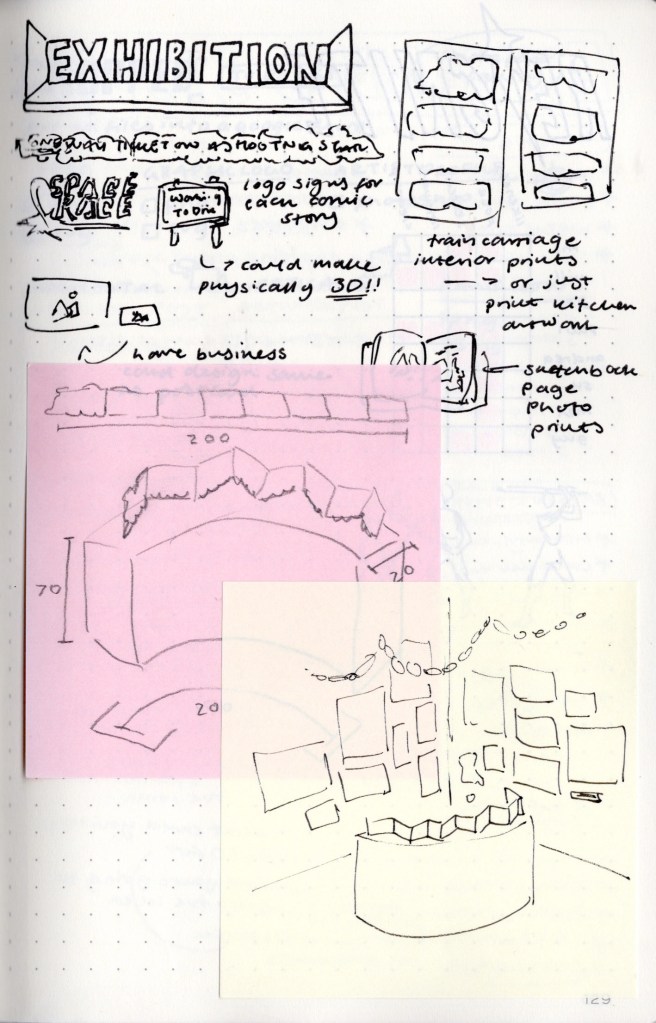 EXHIBITION
ONE WAY TICKET ON A SHOOTING STAR
SPACE
RACE
logo signs for
each comic
story
↳ could make
physically 3D!!
have business
train carriage
interior prints
→ or just
print kitchen
artwork
sketchbook
page
photo
prints
200
70
20
129